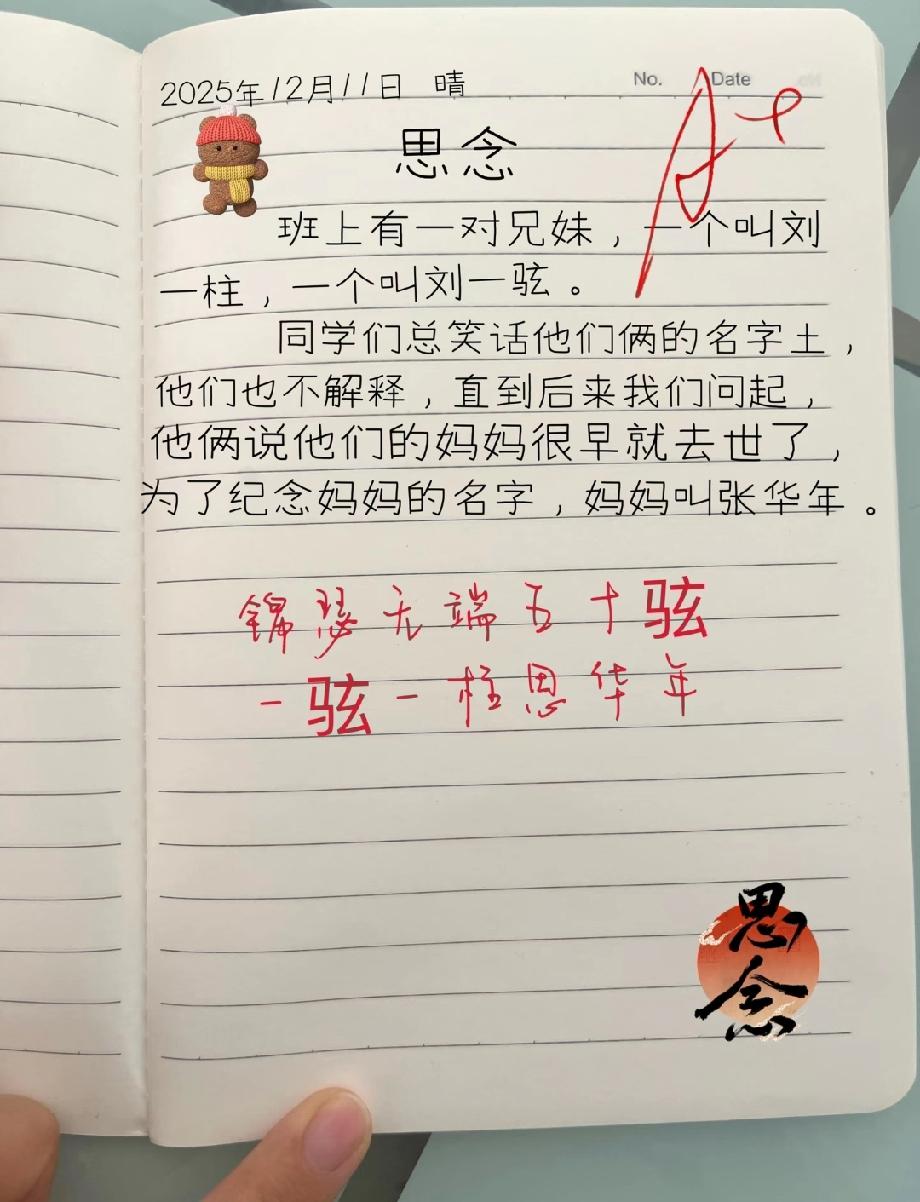 No. Date
2025年12月11日 晴
思念
班上有一对兄妹，一个叫刘
一柱，一个叫刘一弦。
同学们总笑话他们俩的名字土，
他们也不解释，直到后来我们问起，
他俩说他们的妈妈很早就去世了，
为了纪念妈妈的名字，妈妈叫张华年。
A+
锦瑟无端五十弦
一弦一柱思华年
思念